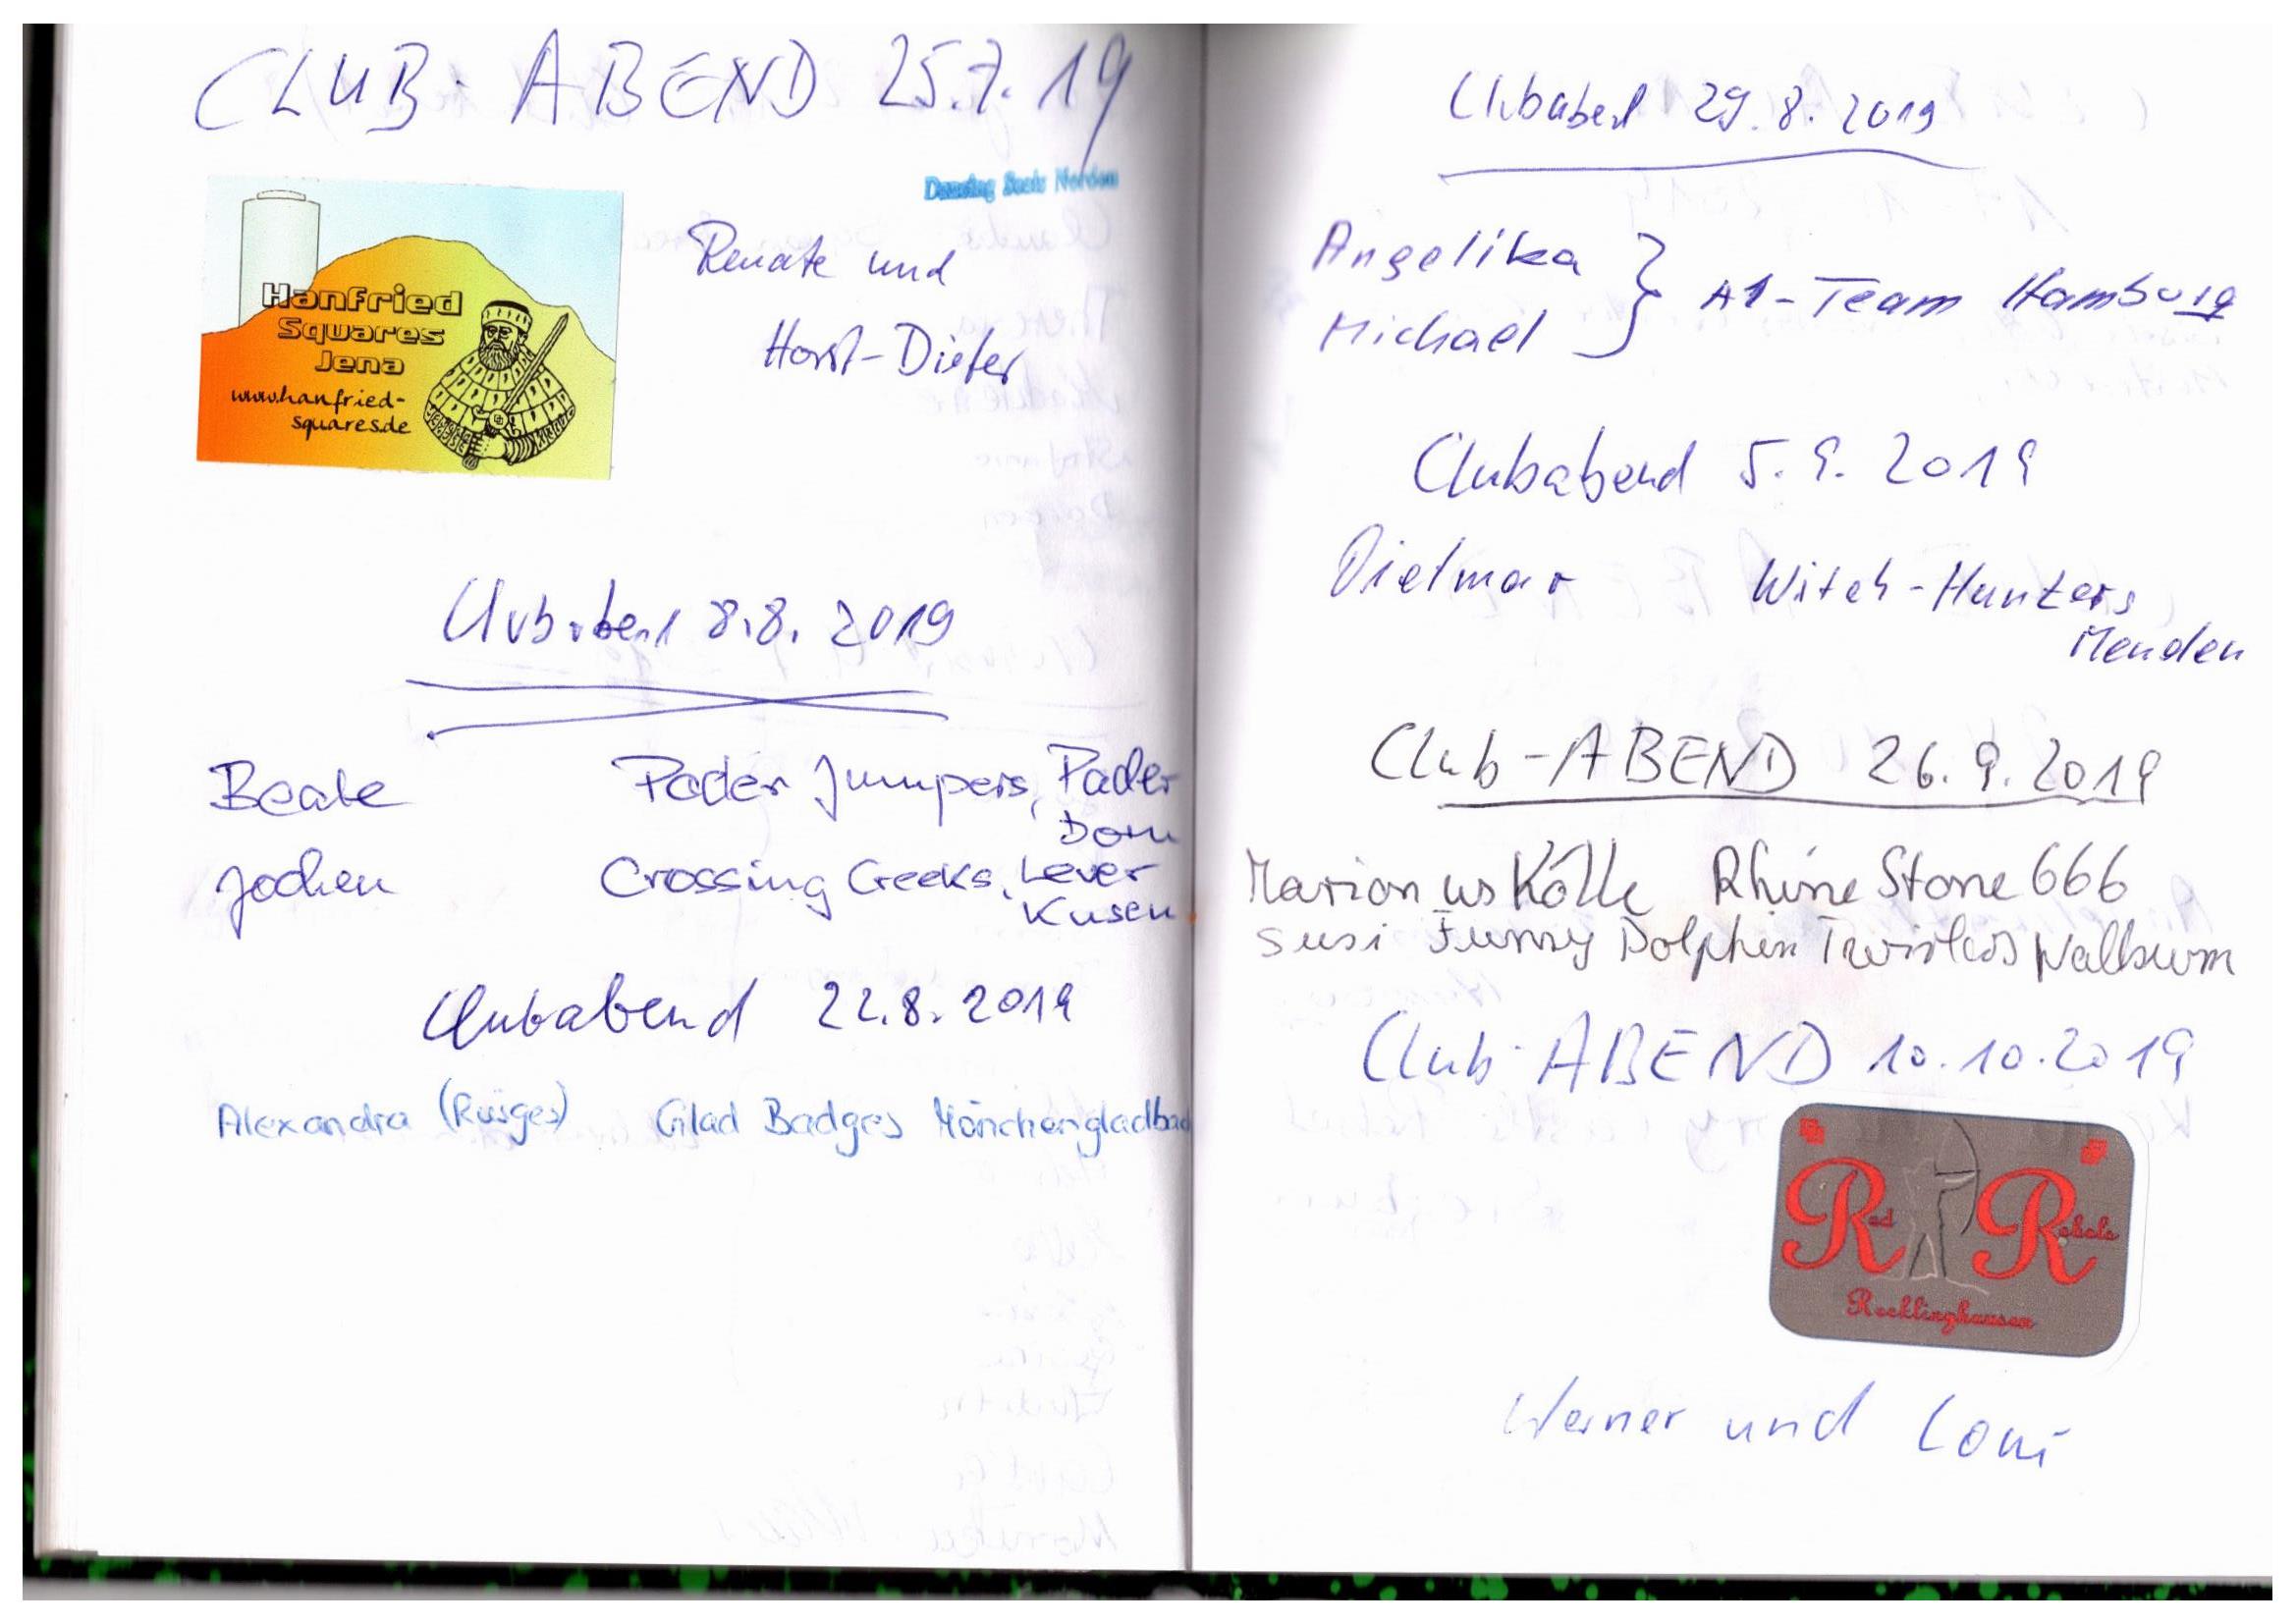 CLUB-ABEND 25.7.19
Dancing Seels Norden
Hanfried
Squares
Jena
www.hanfried-
squares.de
Renate und
Horst-Dieter
Clubabend 8.8.2019
Beate Pader Jumpers, Pader
Born
Jochen Crossing Creeks, Lever
Kusen
Clubabend 22.8.2019
Alexandra (Rüsges) Glad Badges Mönchengladbach
Clubabend 29.8.2019
Angelika
Michael } A1-Team Hamburg
Clubabend 5.9.2019
Dietmar Witch-Hunters
Menden
Club-ABEND 26.9.2019
Marion us Kölle Rhine Stone 666
Susi Funny Dolphin Twisters
Club-ABEND 10.10.2019
Red Rebels
Recklinghausen
Werner und Loni